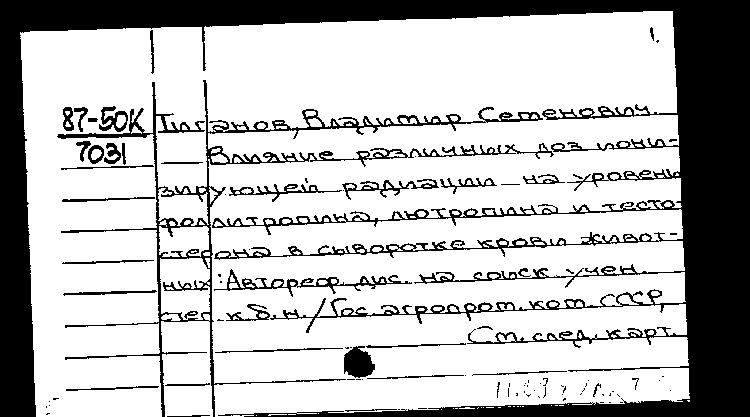 1.
87-50К Тилганов, Владимир Семенович.
7031 Влияние различных доз иони-
зирующей радиации на уровень
фоллитропина, лютропина и тесто-
стерона в сыворотке крови живот-
ных: Автореф. дис. на соиск. учен.
степ. к.б.н. / Гос. агропром. ком. СССР,
См. след. карт.